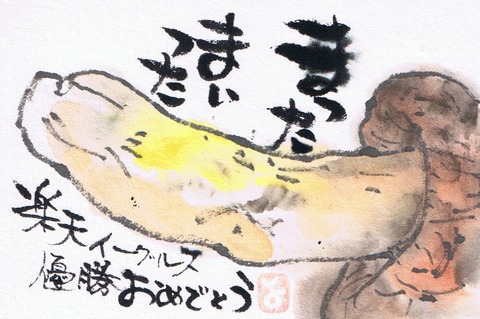 まった
まい
った
楽天イーグルス
優勝おめでとう